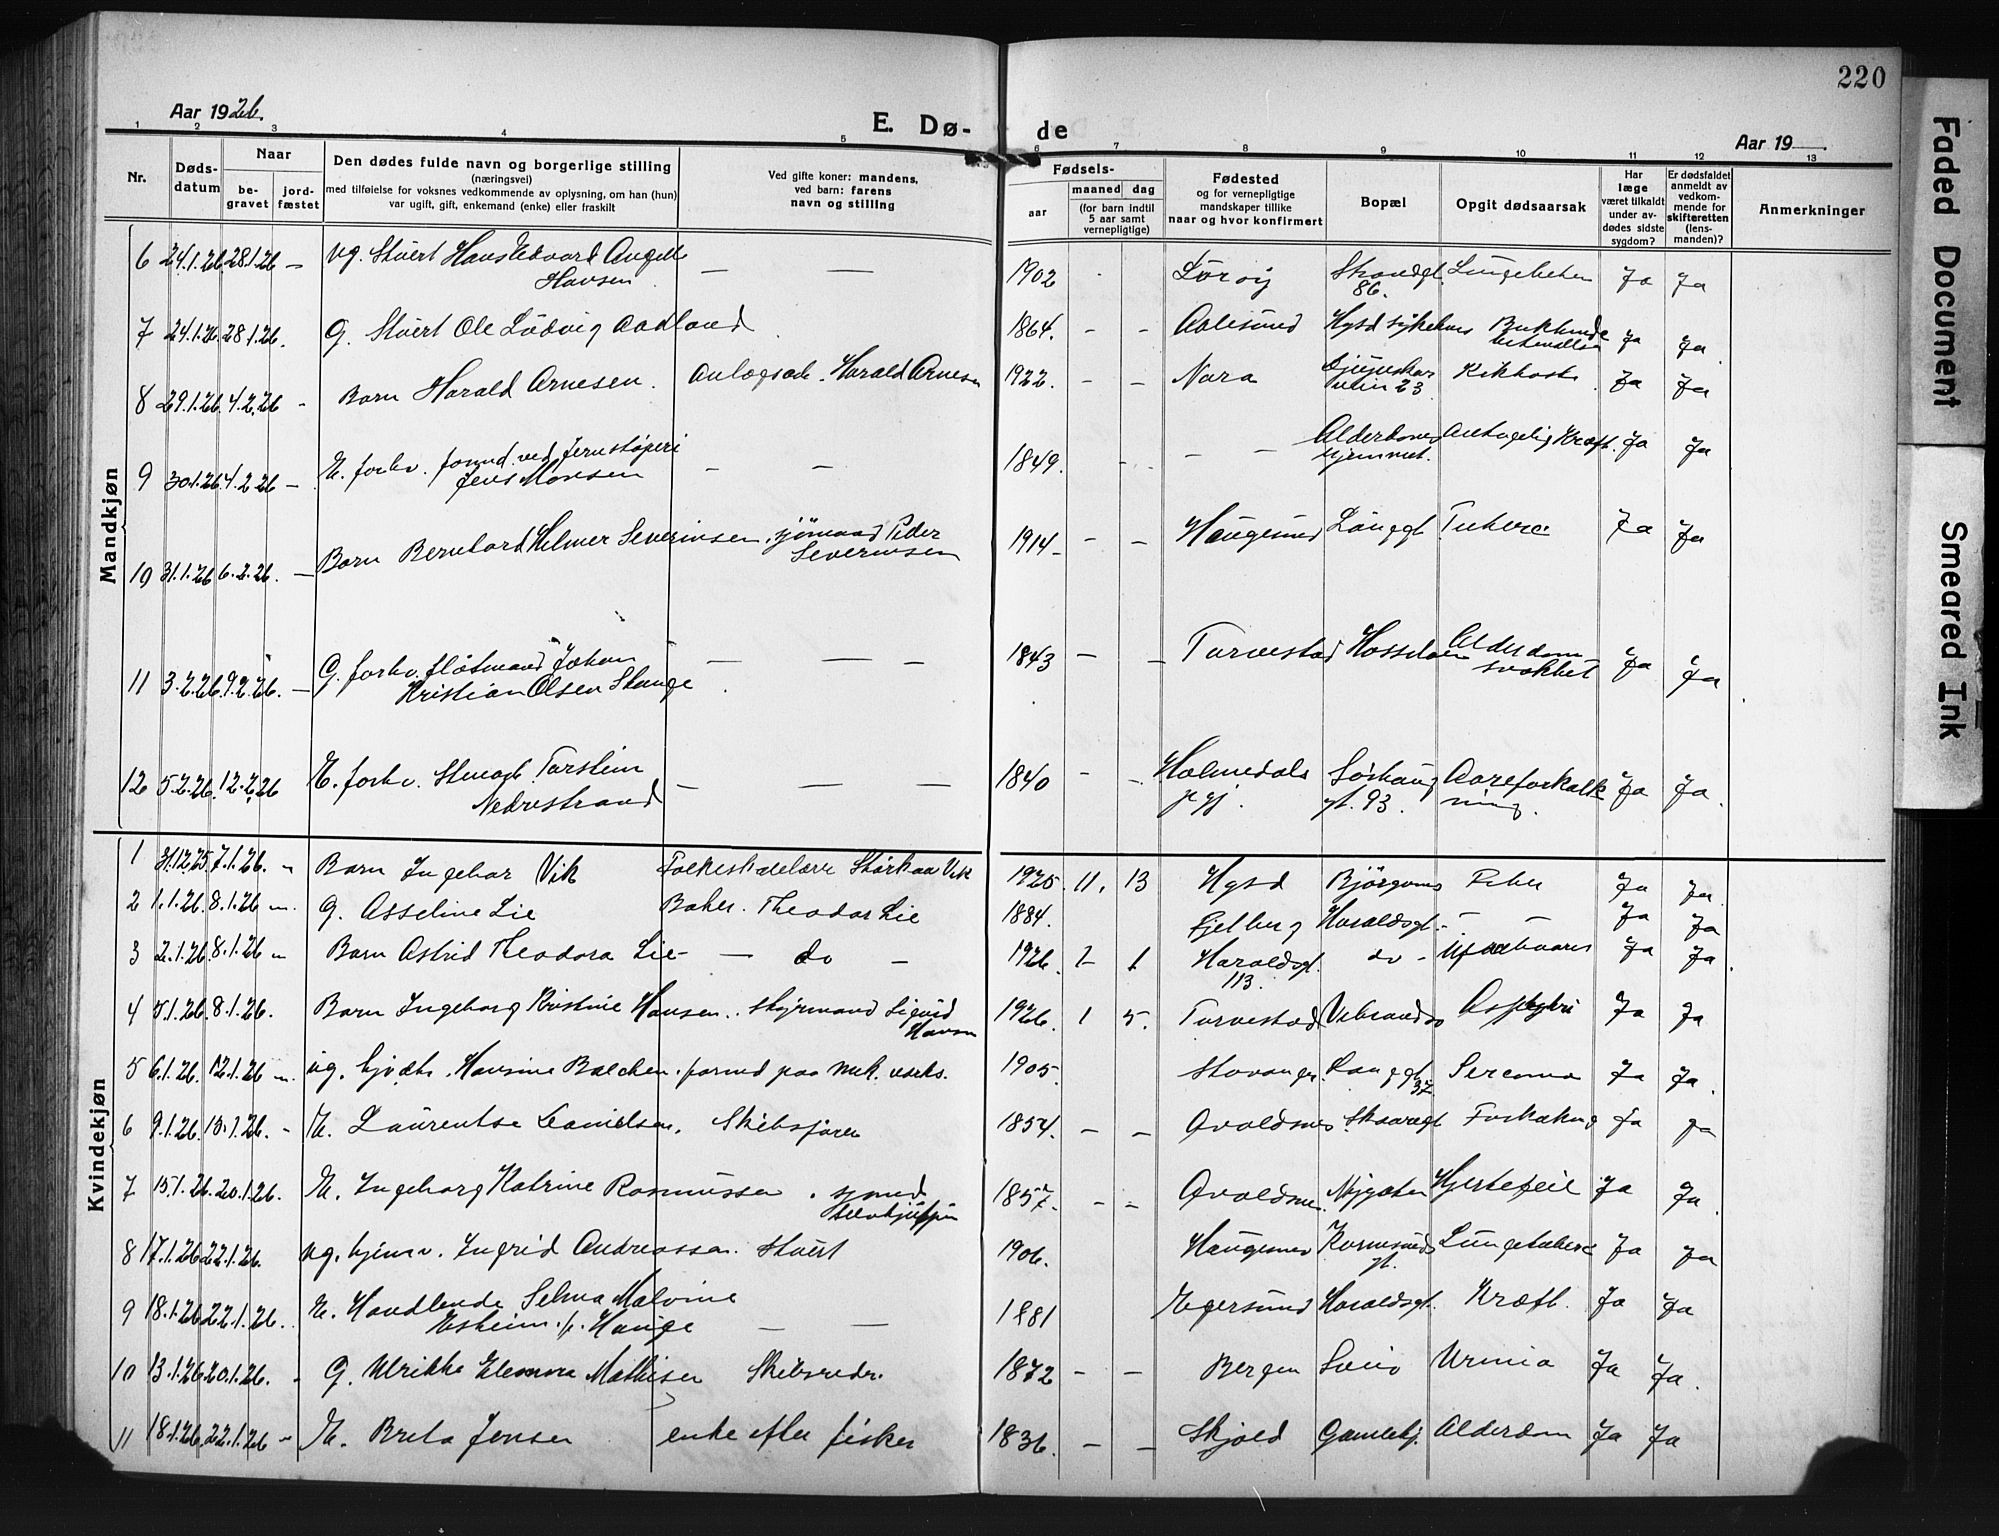 220
Aar 1926.
E. Dø-
de
Aar 19
1 2 3 4 5 6 7 8 9 10 11 12 13
Nr.
Døds-
datum
Naar
be-
gravet
jord-
fæstet
Den dødes fulde navn og borgerlige stilling
(næringsvei)
med tilføielse for voksnes vedkommende av oplysning, om han (hun)
var ugift, gift, enkemand (enke) eller fraskilt
Ved gifte koner: mandens,
ved barn: farens
navn og stilling
Fødsels-
aar
maaned
dag
(for barn indtil
5 aar samt
vernepligtige)
Fødested
og for vernepligtige
mandskaper tillike
naar og hvor konfirmert
Bopæl
Opgit dødsaarsak
Har
læge
været tilkaldt
under av-
dødes sidste
sygdom?
Er dødsfaldet
anmeldt av
vedkom-
mende for
skifteretten
(lens-
manden)?
Anmerkninger
Mandkjøn
6 24.1.26 28.1.26 — ug. Stuert Hans Edvard Angell — — 1902 Strandgt. Ja Ja
Hansen 86.
7 24.1.26 28.1.26. G. Stuert Ole Ludvig Aadland 1864. - - Aalesund Hgsd sykehus Ja Ja
8 29.1.26 4.2.26 - Barn Harald Arnesen. Harald Arnesen 1922. - - Kikhoste Ja Ja
23
9 30.1.26 4.2.26 — E. forhv. formd. ved Jernstøperi — — 1849. - - - - Alderdoms Antagelig Kræft. Ja Ja
Jens Monsen hjemmet.
10 31.1.26 6.2.26. — Barn Bernhard Helmer Severinsen, sjömand Peder 1914 - - Haugesund Langgt. Tuberc Ja Ja
Severinsen
11 3.2.26 9.2.26. — G. forhv. Johan — — — 1843 - - Torvestad Alderdom Ja Ja
Kristian Olsen Stange svakhet
12 5.2.26 12.2.26 E. forhv. Torstein — — — 1840 - - Holmedals Sørhaug Aareforkalk Ja Ja.
Nedrestrand pgj. gt. 93. ning.
Kvindekjøn
1 31.12.25 7.1.26. - Barn Ingebor Vik Folkeskolelærer Vik 1925. 11. 13 Hgsd Ja Ja
2 1.1.26 8.1.26 G. Asseline Lie Baker. Theodor Lie 1884. Fjelberg Haraldsgt. - - Ja Ja
3 2.1.26. 8.1.26 - Barn Astrid Theodora Lie - — do - 1926. 1 Haraldsgt. do - Ja Ja.
113.
4 5.1.26. 8.1.26. Barn Ingeborg Kristine Hansen. styrmand Sigvid 1926. 1 5. Torvestad Ja Ja
Hansen
5 6.1.26. 12.1.26 ug. Hansine Balchen. formd paa mek. verks. 1905. Stavanger. Langgt. Ja Ja.
37
6 9.1.26. 15.1.26. - E. Laurentse Danielsen. Skibsfører 1854. - - Avaldsnes Skaaregt Ja Ja
7 15.1.26. 20.1.26. E. Ingeborg Katrine Rasmussen. 1857. - - Avaldsnes. Hjertefeil Ja Ja
8 17.1.26 22.1.26. ug. Ingrid Andreassen. Stuert 1906. Haugesund Karmsunds Lungetuberc Ja Ja
gt.
9 18.1.26 22.1.26. E. Handlende Selma Malvine 1881 Egersund Haraldsgt. Kræft. Ja Ja
f. Hauge — —
10 13.1.26. 20.1.26. - G. Ulrikke Eleonora Mathisen Skibsreder. 1872 - - Bergen Sveio Urinia Ja Ja.
11 18.1.26 22.1.26 - E. Brita Jensen enke efter fisker 1836. - - Skjold Gamlehj. Alderdom Ja Ja
Faded Document
Smeared Ink